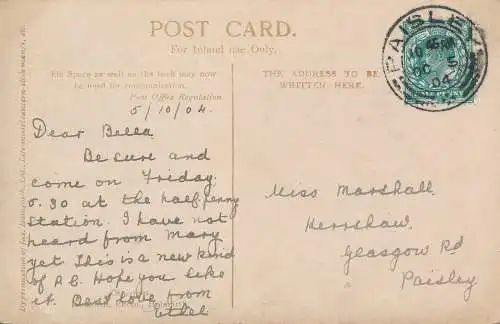 POST CARD.
For Inland use Only.
This Space as well as the back may now
be used for communication.
Post Office Regulation.
THE ADDRESS TO BE
WRITTEN HERE.
PAISLEY
OC 5
04
5/10/04.
Dear Bella
Be sure and
come on Friday
5.30 at the halfpenny
station. I have not
heard from Mary
yet This is a new kind
of P.C. Hope you like
it. Best love from
Ethel
Miss Marshall.
Kerrshaw.
Glasgow Rd
Paisley.